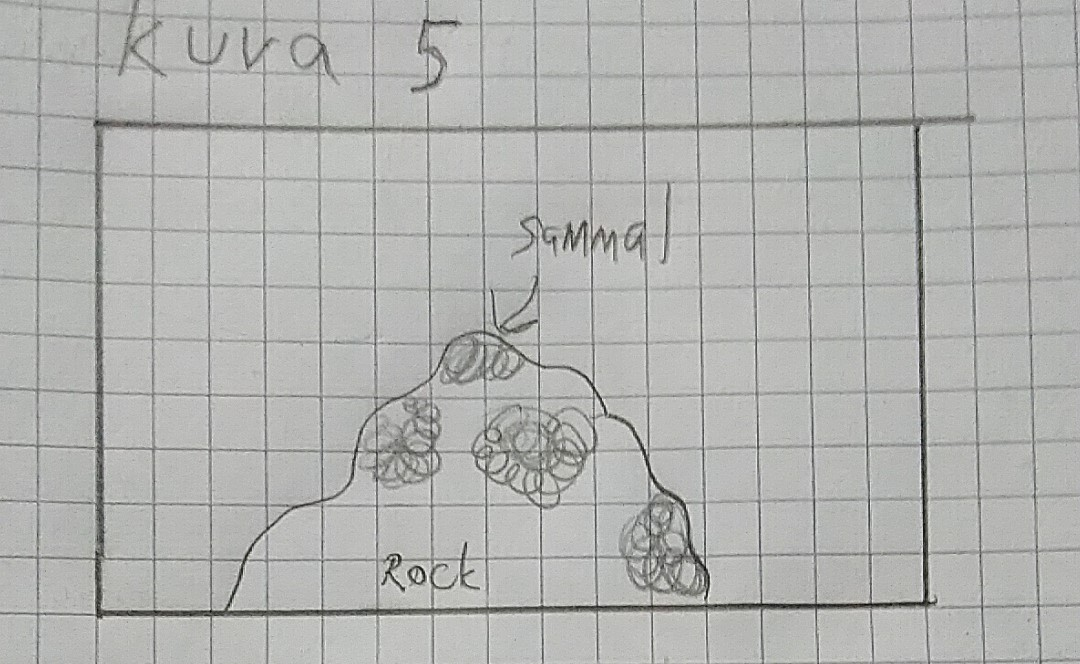 kuva 5
sammal
Rock